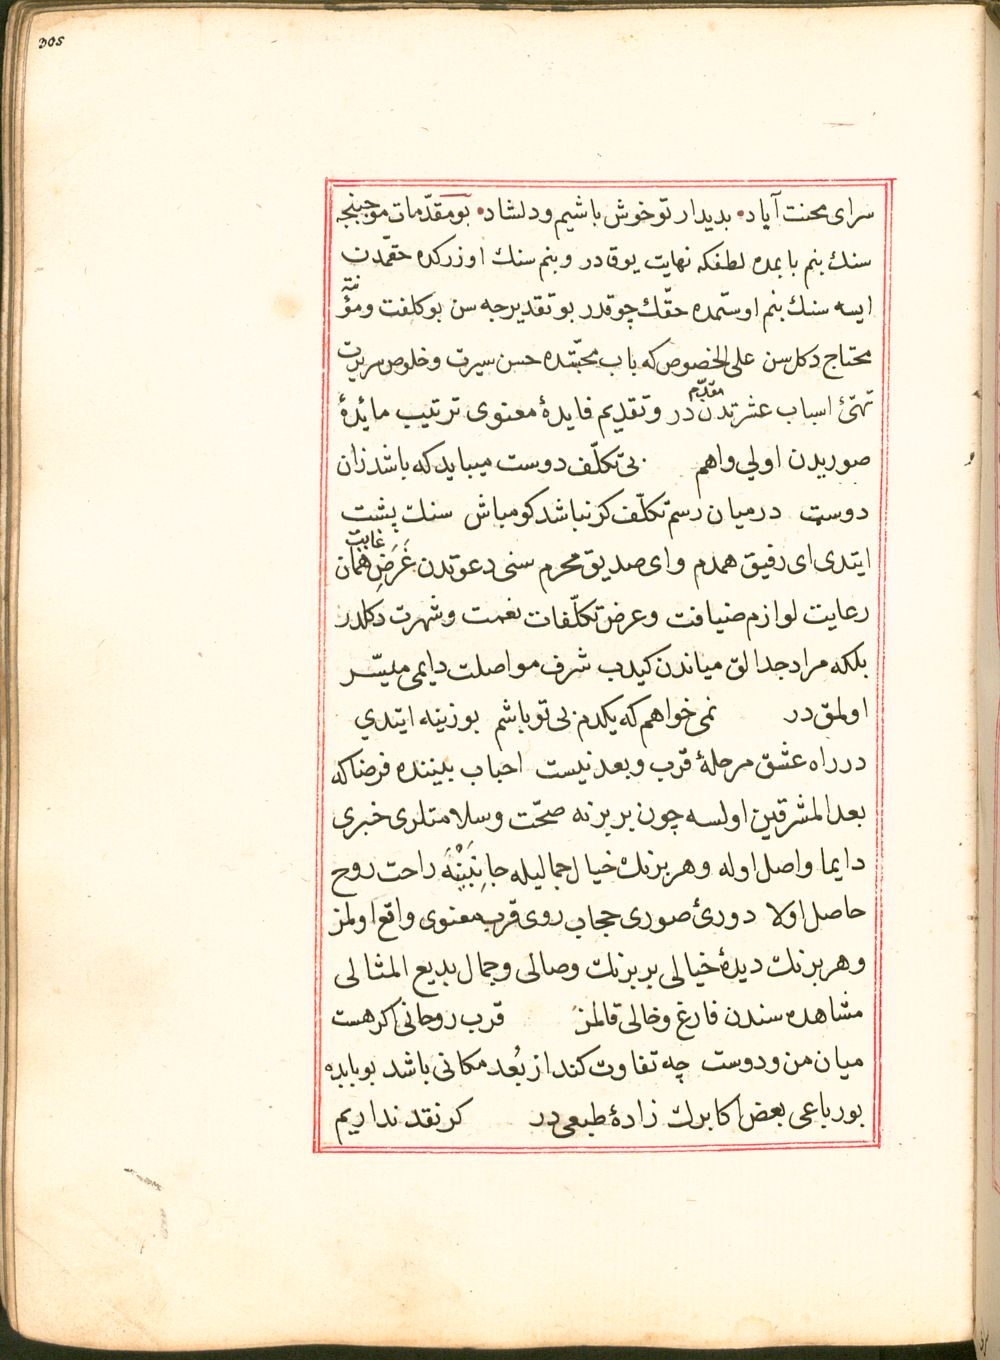 305
سرای محنت آباد • بدیدار تو خوش باشیم و دلشاد • بو مقدّمات موجبنجه
سنك بنم بابمده لطفكه نهایت یوقدر وبنم سنك اوزركده حقمّدن
ایسه سنك بنم اوستمده حقّك چوقدر بو تقدیرجه سن بو كلفت ومؤنته
محتاج دكل سن علی الخصوص كه باب محبّتده حسن سیرت وخلوص سریرت
تهیّئ اسباب عشرتدن مقدّم در وتقدیم فایدۀ معنوی ترتیب مائدۀ
صوریدن اولی واهم بی تكلّف دوست میباید كه باشد زان
دوست در میان رسم تكلّف كر نباشد كو مباش سنك پشت
ایتدی ای رفیق همدم وای صدیق محرم سنی دعوتدن غَرَضِ غایت همان
رعایت لوازم ضیافت وعرض تكلّفات نعمت وشهرت دكلدر
بلكه مراد جدالق میاندن كیدب شرف مواصلت دایمی میسّر
اولمق در نمی خواهم كه یكدم بی تو باشم بوزینه ایتدی
در راه عشق مرحلۀ قرب وبعد نیست احباب بیننده فرضا كه
بعد المشرقین اولسه چون بربرنه صحّت وسلامتلری خبری
دایما واصل اوله وهر برنك خیال جمالیله جانِبَیْنَه راحت روح
حاصل اولا دورئ صوری حجاب روی قرب معنوی واقع اولمز
وهر برنك دیدۀ خیالی بربرنك وصالی وجمال بدیع المثالی
مشاهده سندن فارغ وخالی قالمز قرب روحانی اكر هست
میان من ودوست چه تفاوت كند از بُعد مكانی باشد بو بابده
بو رباعی بعض اكابرك زادۀ طبعی در كر نقد نداریم